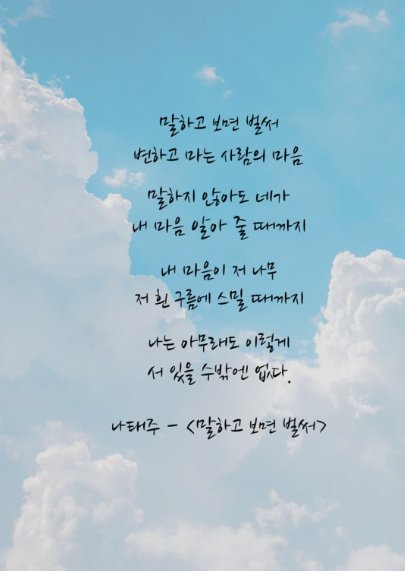 말하고 보면 벌써
변하고 마는 사람의 마음
말하지 않아도 네가
내 마음 알아 줄 때까지
내 마음이 저 나무
저 흰 구름에 스밀 때까지
나는 아무래도 이렇게
서 있을 수밖엔 없다.
나태주 - <말하고 보면 벌써>